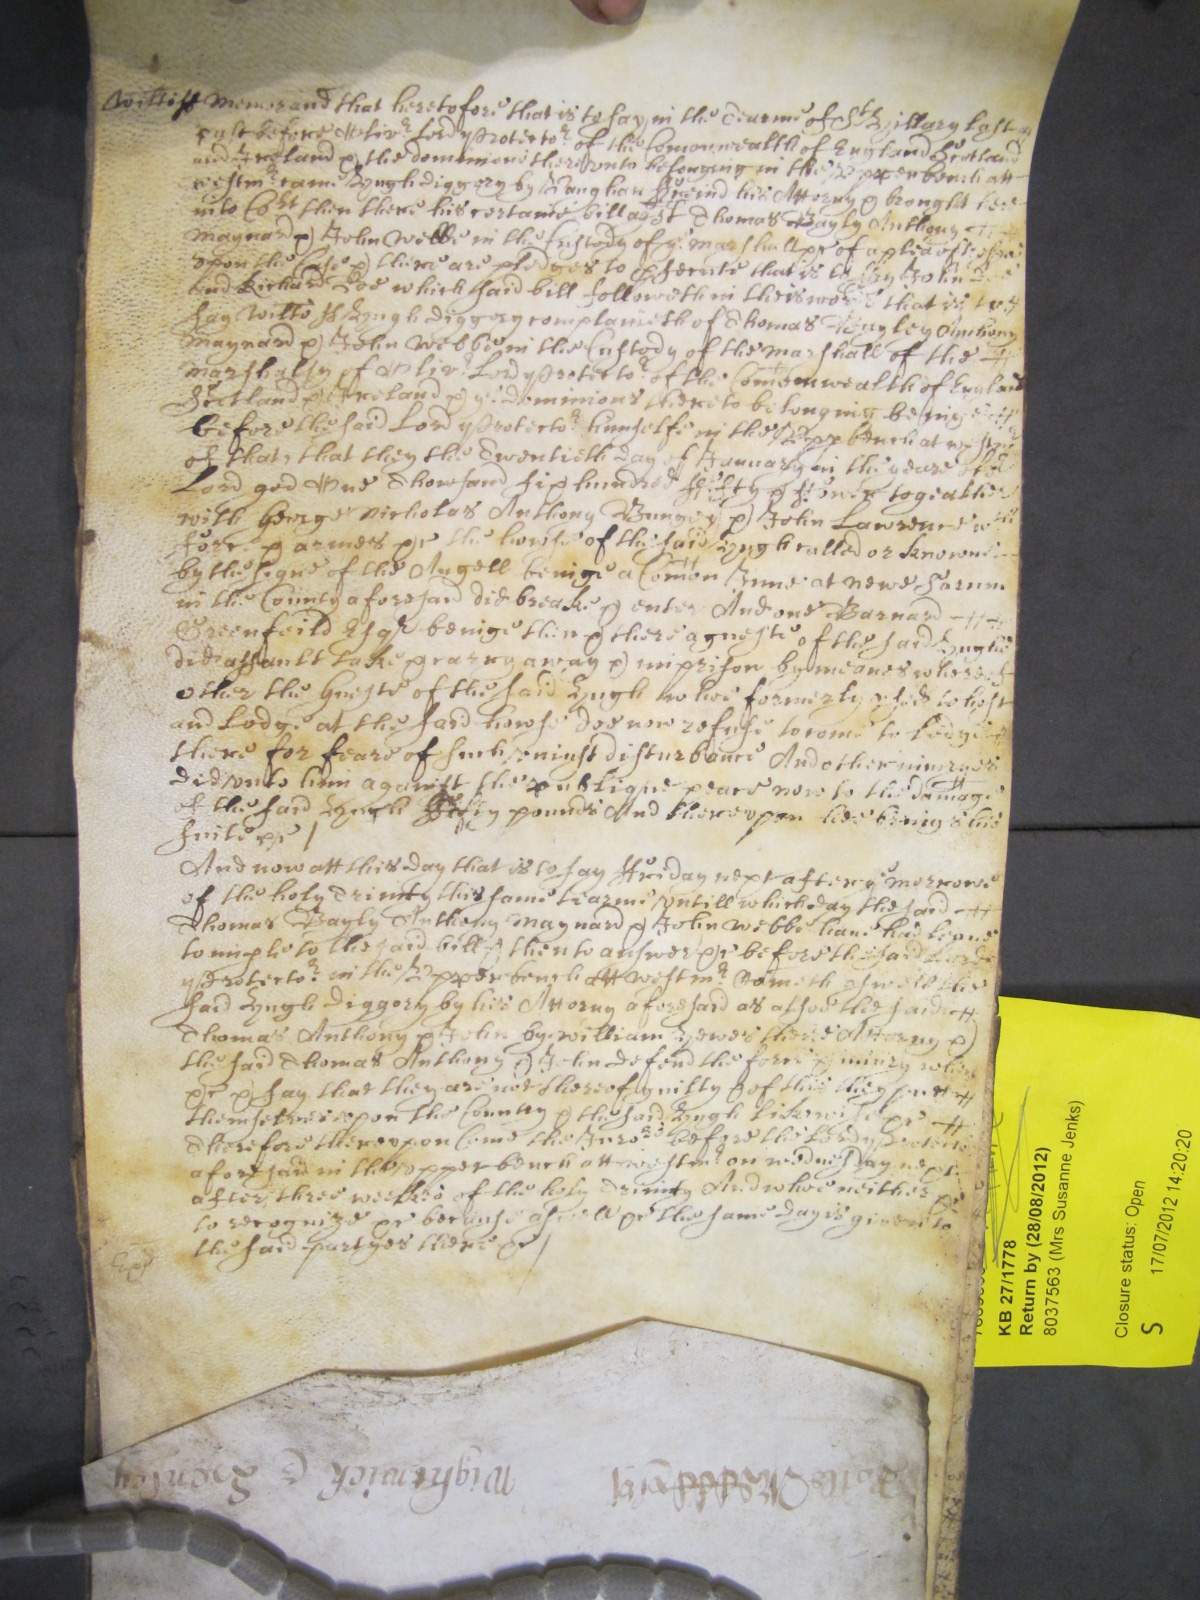 Wiltss Memorand that heretofore that is to say in the Tearme of St Hillary last
past before Oliver Lord Protector of the Comonwealth of England Scotland
and Ireland & the dominions thereunto belonging in the Upper bench att
westmr came Hugh Diggory by Vaughan ffreind his Attorny & brought here
into Cort then there his certaine bill agst Thomas Bayly Anthony
Maynard & John Webbe in the Custody of ye marshall &c of a plea of trespas
upon the Case & there are pledges to prosecute that is to say John Doe
and Richard Roe which said bill followeth in theis words that is to
say Wilts ss Hugh Diggory complaineth of Thomas Bayley Anthony
Maynard & John Webbe in the Custody of the Marshall of the
marshalsy of Oliver Lord Protector of the Comonwealth of England
Scotland & Ireland & ye dominions thereto belonging being
before the said Lord Protector himselfe in the Upper bench at westmr
of that, that they the Twentieth day of January in the yeare of our
Lord god One Thowsand six hundred ffifty & togeather
with George Nicholas Anthony Bungey & John Lawrence with
force & armes &c the howse of the said Hugh called or knowne
by the signe of the Angell beinge a Comon Inne at newe Sarum
in the County aforesaid did breake & enter And one Barnard
Greenfeild Esqr beinge then & there a gueste of the said Hughe
did assault take & carry away & imprison by meanes whereof
other the Guests of the said Hugh whoe formerly used to host
and Lodge at the said howse doe now refuse to come to Lodge
there for feare of such uniust disturbance And other iniuryes
did unto him against the publique peace now to the damage
of the said Hugh ffifty pounds And thereupon hee brings his
suite &c /
And now att this day that is to say ffriday next after ye morrowe
of the holy Trinity this same tearme untill which day the said
Thomas Bayly Anthony Maynard & John Webbe have had leave
to imple to the said bill & then to answer &c before the said Lord
Protector in the Upper bench att westmr Cometh aswell the
said Hugh Diggory by his Attorny aforesaid as alsoe the said
Thomas Anthony & John by William Hewes theire Attorny &
the said Thomas Anthony & John defend the force & iniury when
&c & say that they are not thereof guilty & of this they putt
themselves upon the Country & the said Hugh likewise &c
Therefore thereupon Come the Jurors before the Lord Protector
aforesaid in the Upper bench att westmr on wednesday next
after three weekes of the holy Trinity And whoe neither &c
to recognize &c because aswell &c the same day is given to
the said partyes there &c /
Wightwick &
KB 27/1778
Return by (28/08/2012)
8037563 (Mrs Susanne Jenks)
Closure status: Open
S 17/07/2012 14:20:20